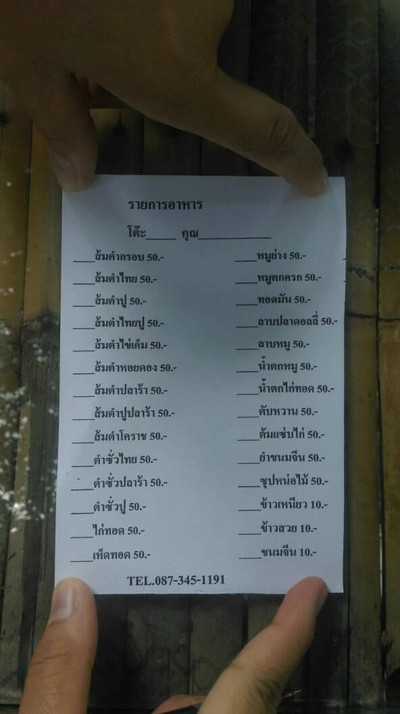 รายการอาหาร
โต๊ะ_____ คุณ____________
____ส้มตำกรอบ 50.-
____ส้มตำไทย 50.-
____ส้มตำปู 50.-
____ส้มตำไทยปู 50.-
____ส้มตำไข่เค็ม 50.-
____ส้มตำหอยดอง 50.-
____ส้มตำปลาร้า 50.-
____ส้มตำปูปลาร้า 50.-
____ส้มตำโคราช 50.-
____ตำซั่วไทย 50.-
____ตำซั่วปลาร้า 50.-
____ตำซั่วปู 50.-
____ไก่ทอด 50.-
____เห็ดทอด 50.-
____หมูย่าง 50.-
____หมูตกครก 50.-
____ทอดมัน 50.-
____ลาบปลาดอลลี่ 50.-
____ลาบหมู 50.-
____น้ำตกหมู 50.-
____น้ำตกไก่ทอด 50.-
____ตับหวาน 50.-
____ต้มแซ่บไก่ 50.-
____ยำขนมจีน 50.-
____ซุปหน่อไม้ 50.-
____ข้าวเหนียว 10.-
____ข้าวสวย 10.-
____ขนมจีน 10.-
TEL.087-345-1191